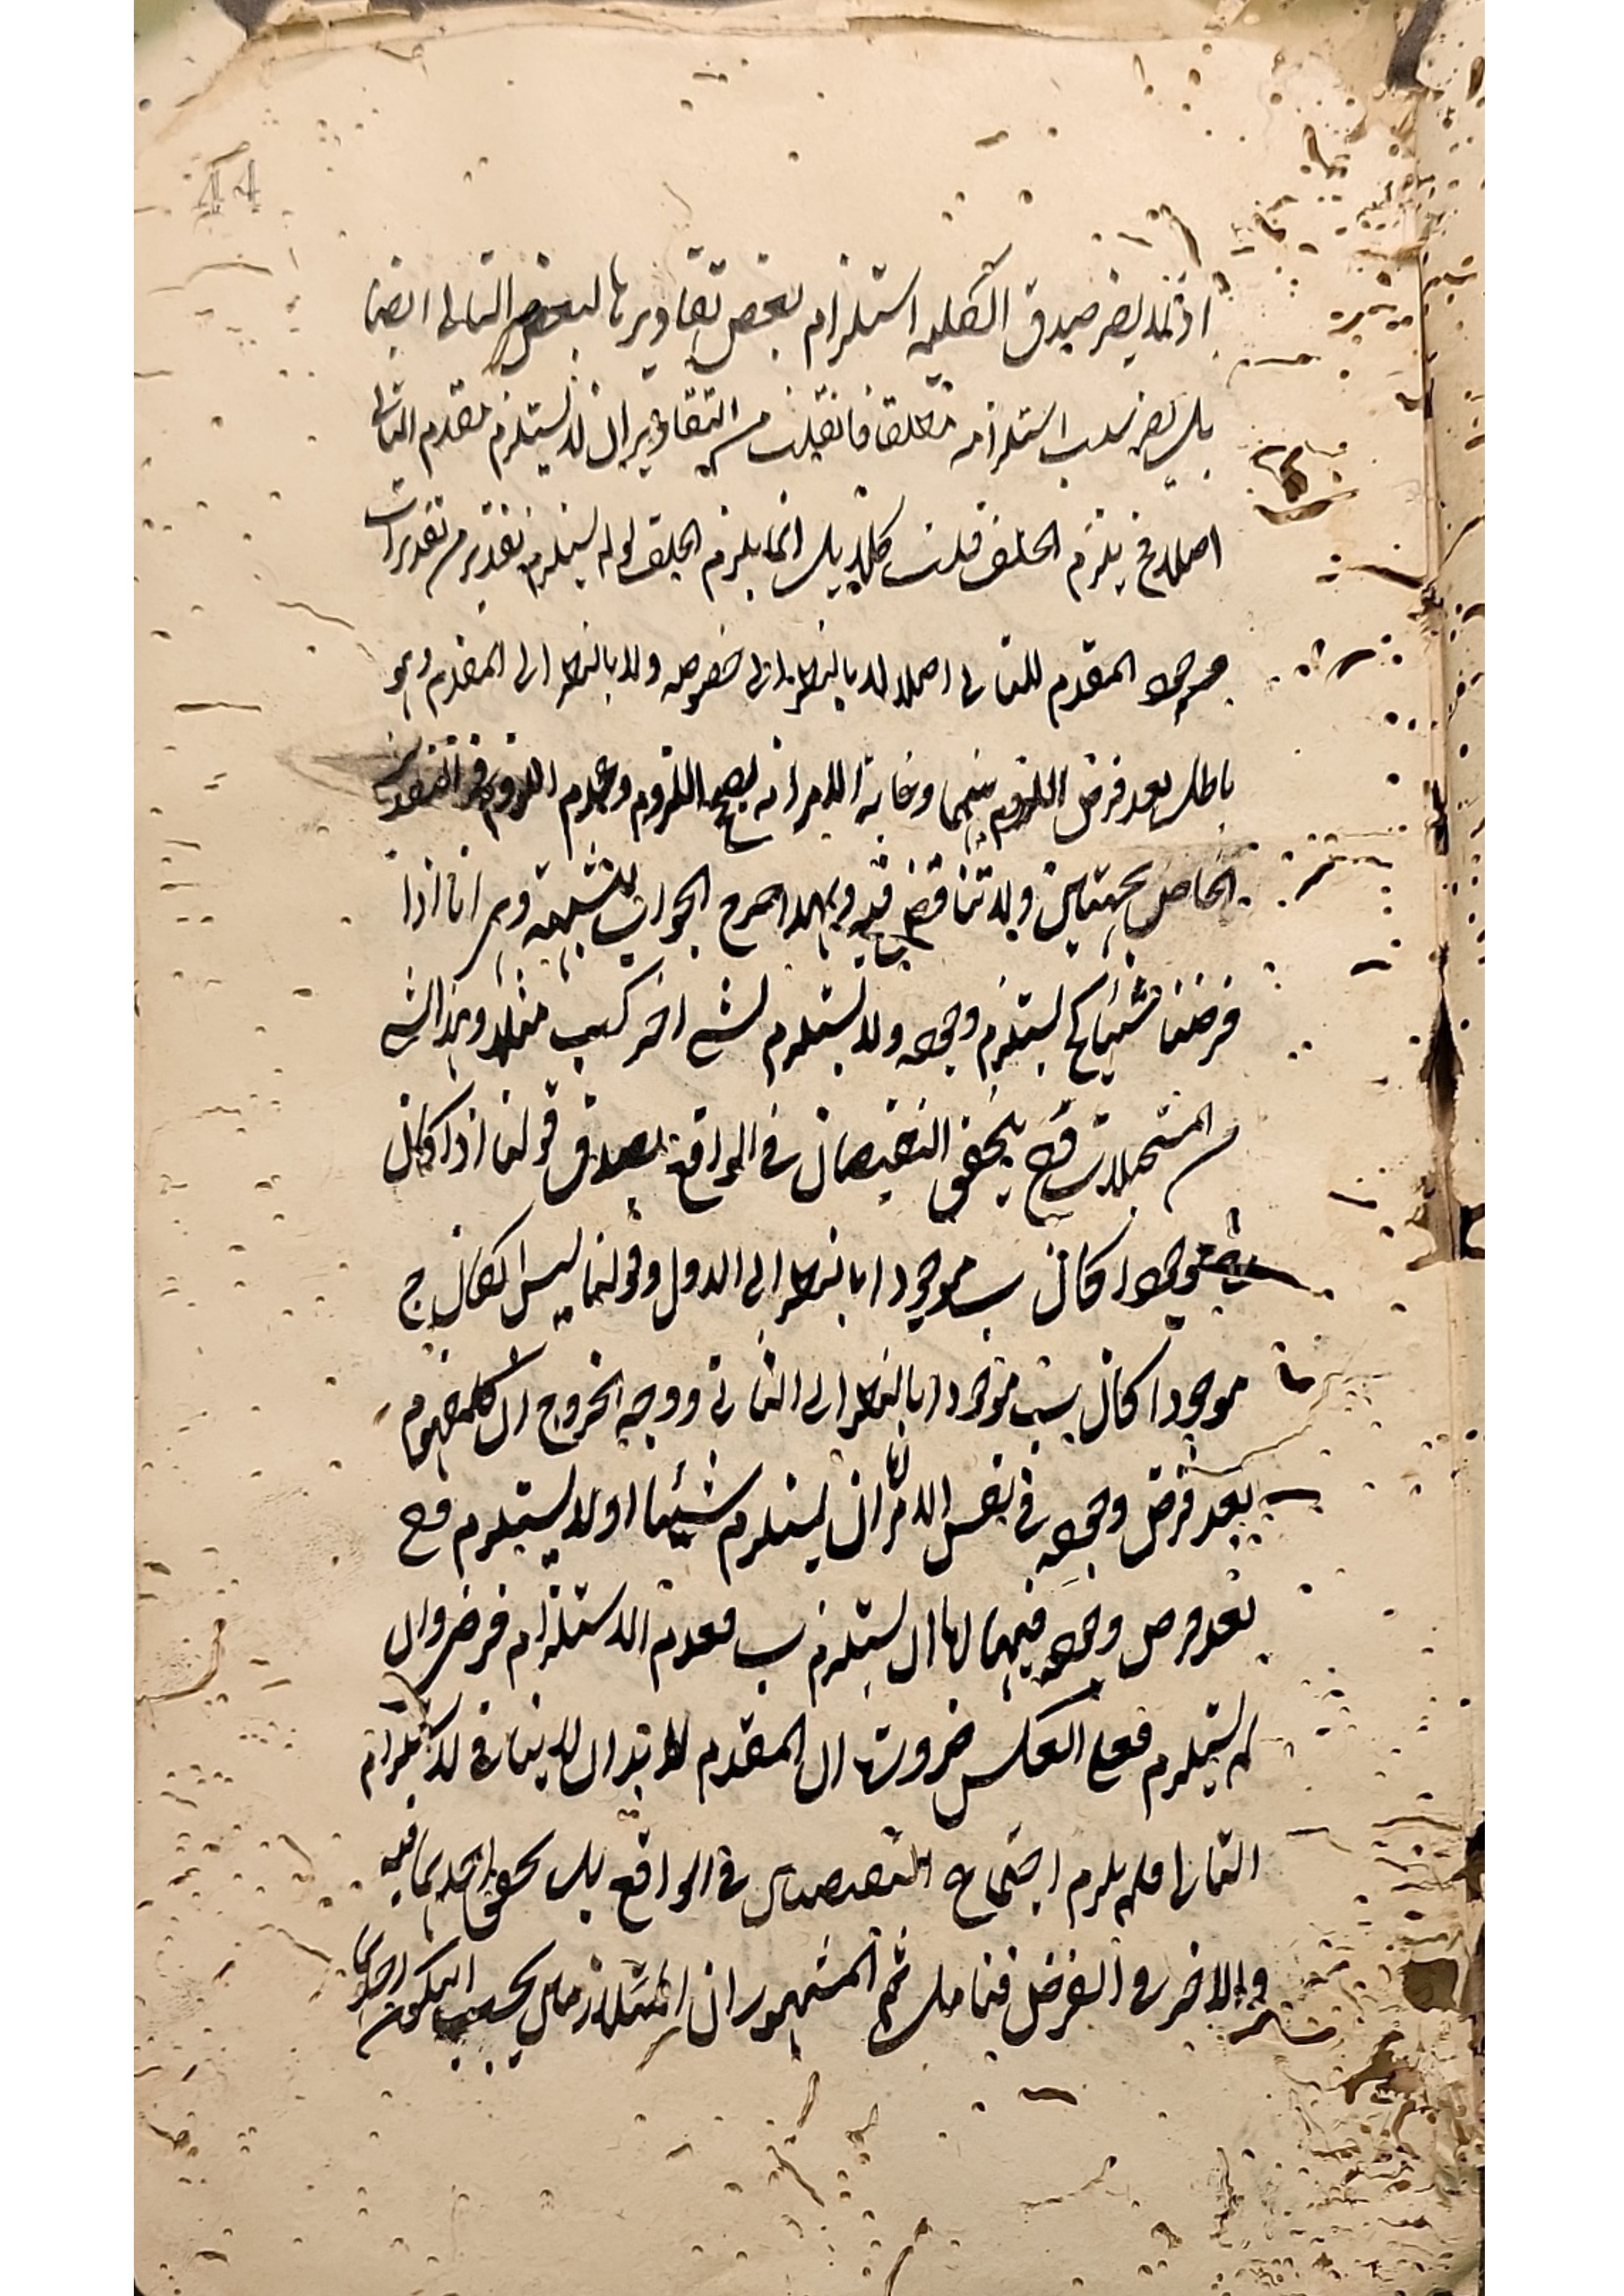 44
اذ لا يضر صدق الكلية استلزام بعض تقاديرها لبعض التالى ايضا
بل يضر سلب استلزامه مطلقا فان قلت من التقادير ان لا يستلزم مقدم التالى
اصلا فح يلزم الخلف قلت كلا بل انما يلزم الخلف لو لم يستلزم تقدير من تقديرات
وجود المقدم للتالى اصلا لا بالنظر الى خصوصه ولا بالنظر الى المقدم وهو
باطل بعد فرض اللزوم بينهما وغاية الامر انه يصح اللزوم وعدم اللزوم فى التقدير
الخاص بجهتين ولا تناقض فيه وبهذا خرج الجواب لشبهة وهى انا اذا
فرضنا شيئا كج يستلزم وجوده ولا يستلزم لشئ اخر كب مثلا وهذا الشئ
من المستحيلات فح يتحقق النقيضان فى الواقع يصدق قولنا اذا كان
ج موجودا كان ب موجودا بالنظر الى الاول وقولنا ليس اذا كان ج
موجودا كان ب موجودا بالنظر الى الثانى ووجه الخروج ان كل مفهوم
بعد فرض وجوده فى نفس الامر اما ان يستلزم شيئا او لا يستلزم فح
بعد فرض وجوده فيهما اما ان يستلزم ب فعدم الاستلزام فرضى وان
لم يستلزم فعلى العكس ضرورة ان المقدم لا بد ان لا ينافى لاستلزام
التالى فلم يلزم اجتماع النقيضين فى الواقع بل تحقق احدهما فيه
والاخر فى الفرض فتامل ثم المشهور ان المتلازمان يجب ان يكون احدهما